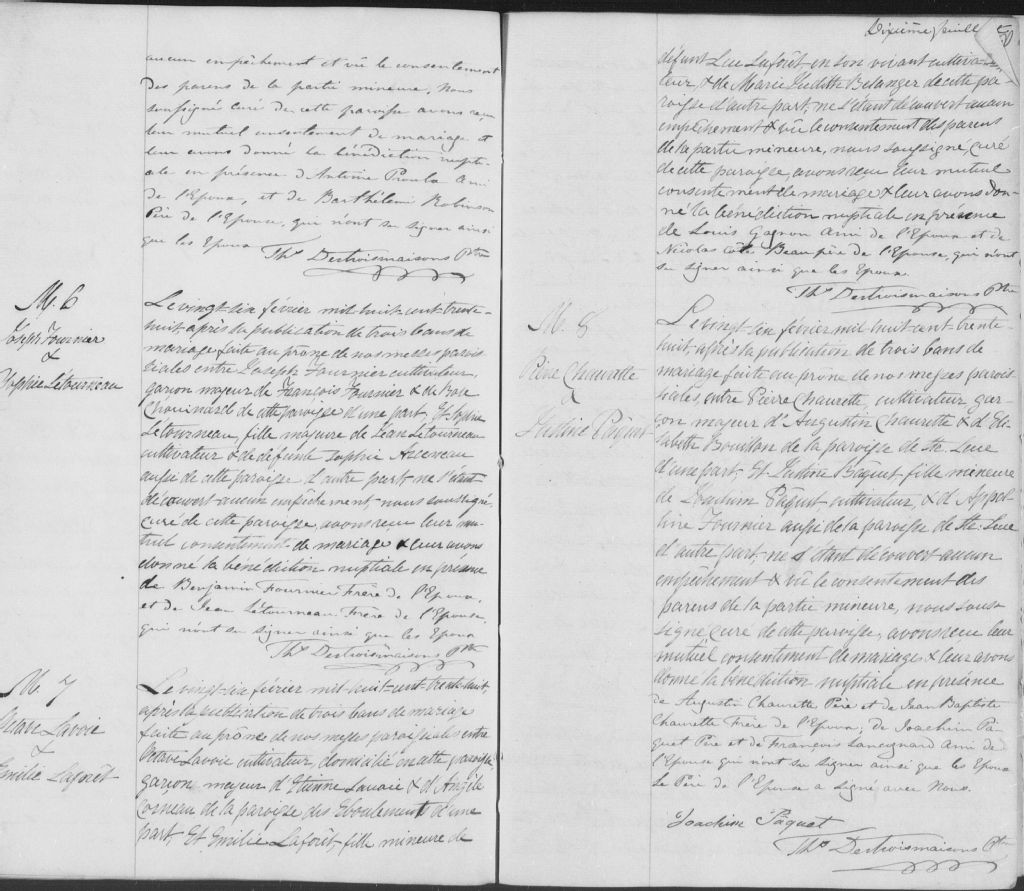 aucun empêchement et vû le consentement
des parens de la partie mineure, Nous
soussigné curé de cette paroisse avons reçu
leur mutuel consentement de mariage et
leur avons donné la bénédiction nupti-
ale en présence d'Antoine Proulx Ami
de l'Epoux, et de Barthélemi Robinson
Père de l'Epouse, qui n'ont su signer ainsi
que les Epoux
Ths Destroismaisons Ptre
M. 6
Joseph Fournier
&
Sophie Létourneau
Le vingt six février mil huit cent trente-
huit, après la publication de trois bans de
mariage faite au prône de nos messes parois-
siales entre Joseph Fournier cultivateur,
garçon majeur de François Fournier & de Rose
Chouinard de cette paroisse d'une part, Et Sophie
Létourneau, fille majeure de Jean Létourneau
cultivateur & de défunte Sophie Arseneau
aussi de cette paroisse d'autre part, ne s'étant
découvert aucun empêchement, nous soussigné,
curé de cette paroisse, avons reçu leur mu-
tuel consentement de mariage & leur avons
donné la bénédiction nuptiale en présence
de Benjamin Fournier Frère de l'Epoux,
et de Jean Létourneau Frère de l'Epouse,
qui n'ont su signer ainsi que les Epoux
Ths Destroismaisons Ptre
M. 7
Octave Lavoie
&
Emilie Laforêt
Le vingt six février mil huit cent trente huit,
après la publication de trois bans de mariage
faite au prône de nos messes paroissiales entre
Octave Lavoie cultivateur, domicilié en cette paroisse,
garçon majeur d'Etienne Lavoie & d'Angèle
Corneau de la paroisse des Eboulements d'une
part, Et Emilie Laforêt, fille mineure de
Dixième feuille
défunt Luc Laforêt en son vivant cultiva-
teur, & de Marie Judith Belanger de cette pa-
roisse d'autre part, ne s'étant découvert aucun
empêchement & vû le consentement des parens
de la partie mineure, nous soussigné, curé
de cette paroisse, avons reçu leur mutuel
consentement de mariage & leur avons don-
né la bénédiction nuptiale en présence
de Louis Gagnon Ami de l'Epoux et de
Nicolas Côté Beau père de l'Epouse, qui n'ont
su signer ainsi que les Epoux.
Ths Destroismaisons Ptre
M. 8
Pierre Chaurette
&
Justine Pâquet
Le vingt six février mil huit cent trente-
huit, après la publication de trois bans de
mariage faite au prône de nos messes parois-
siales, entre Pierre Chaurette, cultivateur, gar-
çon majeur d'Augustin Chaurette & d'Eli-
sabette Bouillon de la paroisse de Ste. Luce
d'une part, Et Justine Pâquet, fille mineure
de Joachim Pâquet, cultivateur, & d'Appol-
line Fournier aussi de la paroisse de Ste. Luce
d'autre part, ne s'étant découvert aucun
empêchement & vû le consentement des
parens de la partie mineure, nous sous-
signé, curé de cette paroisse, avons reçu leur
mutuel consentement de mariage & leur avons
donné la bénédiction nuptiale en présence
de Augustin Chaurette Père et de Jean Baptiste
Chaurette Frère de l'Epoux; de Joachim Pâ-
quet Père et de François Lancignard Ami de
l'Epouse qui n'ont su signer ainsi que les Epoux
Le Père de l'Epouse a signé avec Nous.
Joachim Pâquet
Ths Destroismaisons Ptre